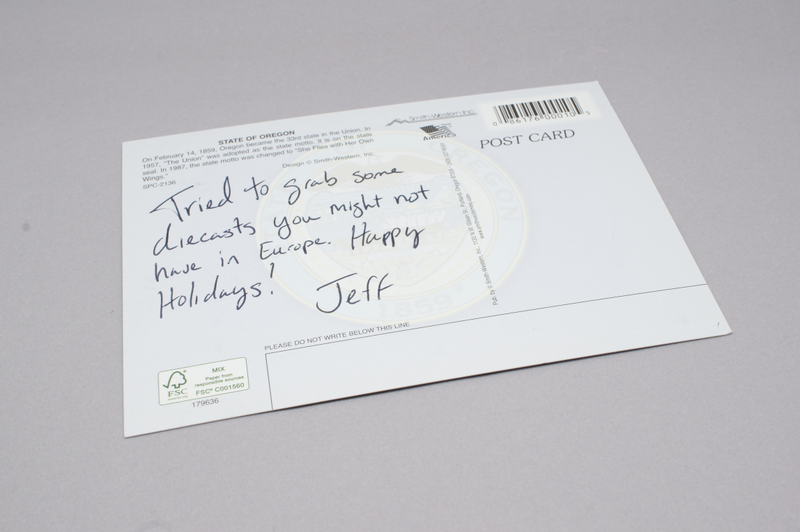 STATE OF OREGON
On February 14, 1859, Oregon became the 33rd state in the Union. In
1957, "The Union" was adopted as the state motto. It is on the state
seal. In 1987, the state motto was changed to "She Flies with Her Own
Wings."
SPC-2136
Design © Smith-Western, Inc.
Tried to grab some
diecasts you might not
have in Europe. Happy
Holidays! Jeff
Smith-Western Inc.
America
POST CARD
PLEASE DO NOT WRITE BELOW THIS LINE
MIX
Paper from
responsible sources
FSC® C001560
FSC
179636
OREGON
1859